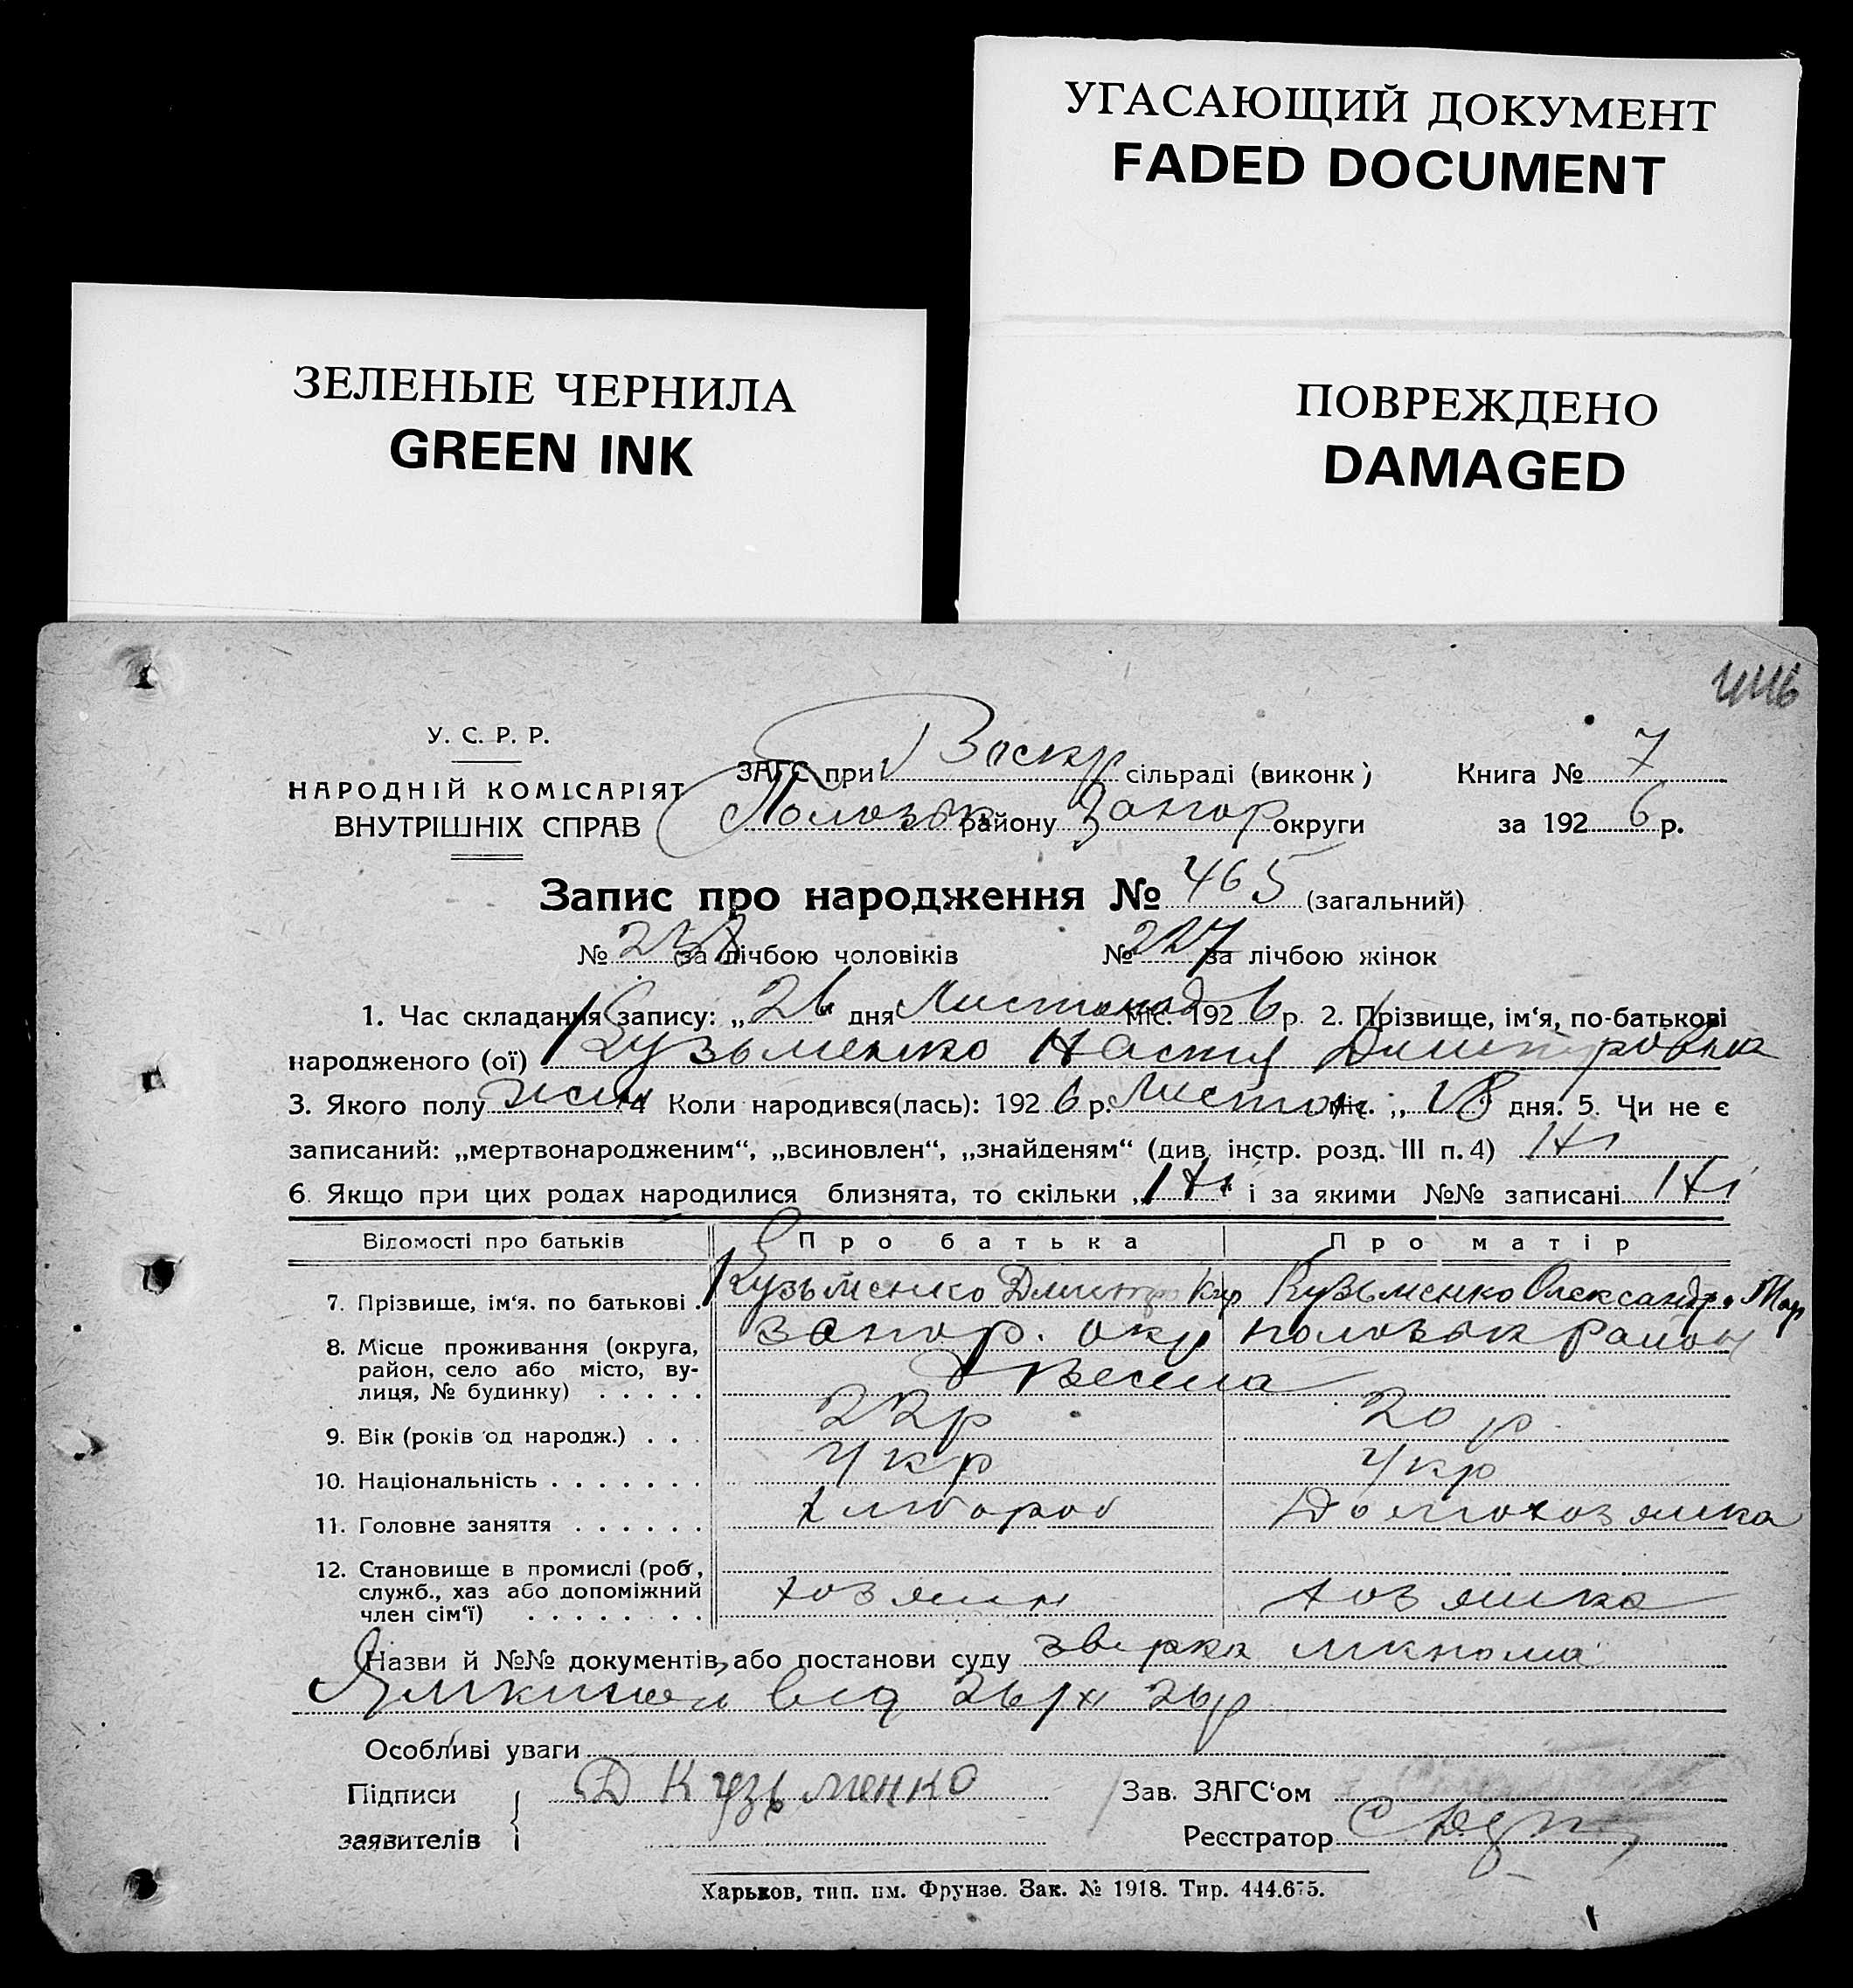 УГАСАЮЩИЙ ДОКУМЕНТ
FADED DOCUMENT
ЗЕЛЕНЫЕ ЧЕРНИЛА
GREEN INK
ПОВРЕЖДЕНО
DAMAGED
446
У. С. Р. Р.
НАРОДНІЙ КОМІСАРІЯТ
ВНУТРІШНІХ СПРАВ
ЗАГС при Воскр сільраді (виконк.) Книга № 7
Пологівськ району Запор округи за 1926 р.
Запис про народження № 465 (загальний)
№ 238 за лічбою чоловіків № 227 за лічбою жінок
1. Час складання запису: „26“ дня Листопад міс. 1926 р. 2. Прізвище, ім‘я, по-батькові
народженого (ої) Кузьменко Настя Дмитровна
3. Якого полу жін 4 Коли народився(лась): 1926 р. Листоп міс. „18 дня. 5. Чи не є
записаний: „мертвонародженим“, „всиновлен“, „знайденям“ (див. інстр. розд. III п. 4) Ні
6. Якщо при цих родах народилися близнята, то скільки „Ні“ і за якими №№ записані Ні
Відомості про батьків Про батька Про матір
7. Прізвище, ім‘я, по батькові . Кузьменко Дмитро Кир Кузьменко Олександра Мар
8. Місце проживання (округа, Запор. окр район
район, село або місто, ву-
лиця, № будинку) . . . . .
9. Вік (років од народж.) . . . 22 р 20 р.
10. Національність . . . . . . . Укр Укр
11. Головне заняття . . . . . . хлібороб Домохозяйка
12. Становище в промислі (роб.,
служб., хаз або допоміжний хозяин хозяйка
член сім‘ї) . . . . . . . .
Назви й №№ документів, або постанови суду
від 26/XI 26 р
Особливі уваги
Підписи Д Кузьменко Зав. ЗАГС‘ом
заявителів Реєстратор
Харьков, тип. им. Фрунзе. Зак. № 1918. Тир. 444.675.